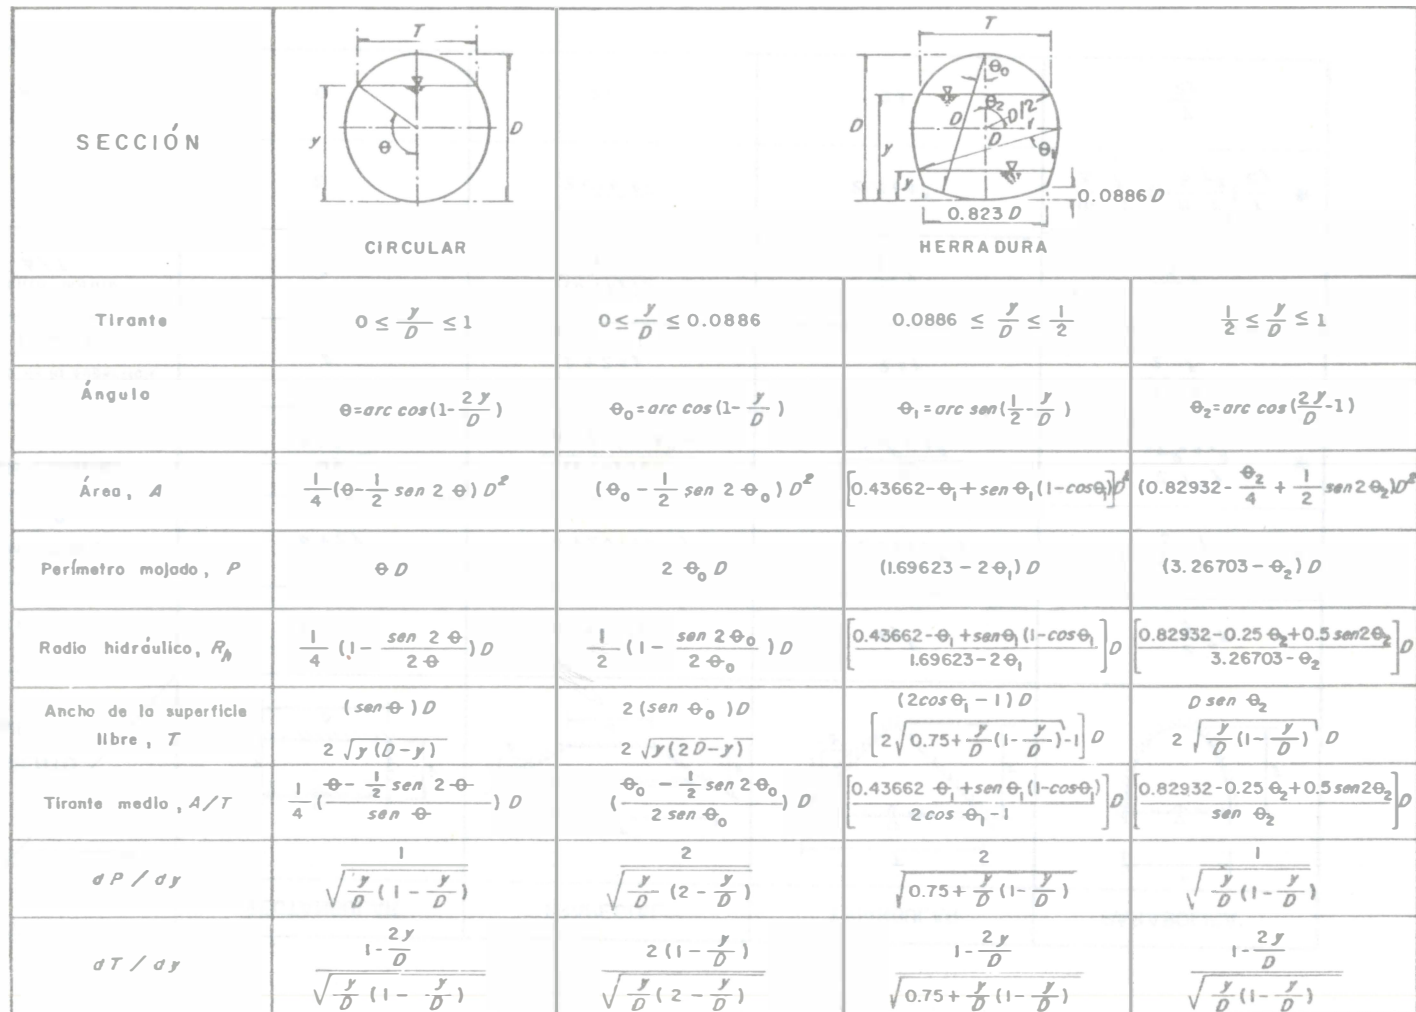 SECCIÓN
T
y
θ
D
CIRCULAR
T
θ₀
θ₂
D
D
D/2
y
D
θ₁
y
0.0886 D
0.823 D
HERRADURA
Tirante
0 ≤ y/D ≤ 1
0 ≤ y/D ≤ 0.0886
0.0886 ≤ y/D ≤ 1/2
1/2 ≤ y/D ≤ 1
Ángulo
θ=arc cos(1-2y/D)
θ₀=arc cos(1-y/D)
θ₁=arc sen(1/2-y/D)
θ₂=arc cos(2y/D-1)
Área, A
1/4(θ-1/2 sen 2θ)D²
(θ₀-1/2 sen 2θ₀)D²
[0.43662-θ₁+sen θ₁(1-cosθ₁)]D²
(0.82932-θ₂/4+1/2 sen2θ₂)D²
Perímetro mojado, P
θ D
2 θ₀ D
(1.69623-2θ₁)D
(3.26703-θ₂)D
Radio hidráulico, Rh
1/4(1-sen 2θ/2θ)D
1/2(1-sen 2θ₀/2θ₀)D
[0.43662-θ₁+senθ₁(1-cosθ₁/1.69623-2θ₁]D
[0.82932-0.25θ₂+0.5sen2θ₂/3.26703-θ₂]D
Ancho de la superficie
libre, T
(senθ)D
2√y(D-y)
2(sen θ₀)D
2√y(2D-y)
(2cos θ₁-1)D
[2√0.75+y/D(1-y/D)-1]D
D sen θ₂
2√y/D(1-y/D) D
Tirante medio, A/T
1/4(θ-1/2 sen 2θ/sen θ)D
(θ₀-1/2 sen 2θ₀/2 sen θ₀)D
[0.43662 θ₁+sen θ₁(1-cosθ₁)/2cos θ₁-1]D
[0.82932-0.25θ₂+0.5sen2θ₂/sen θ₂]D
dP/dy
1/√y/D(1-y/D)
2/√y/D(2-y/D)
2/√0.75+y/D(1-y/D)
1/√y/D(1-y/D)
dT/dy
1-2y/D/√y/D(1-y/D)
2(1-y/D)/√y/D(2-y/D)
1-2y/D/√0.75+y/D(1-y/D)
1-2y/D/√y/D(1-y/D)